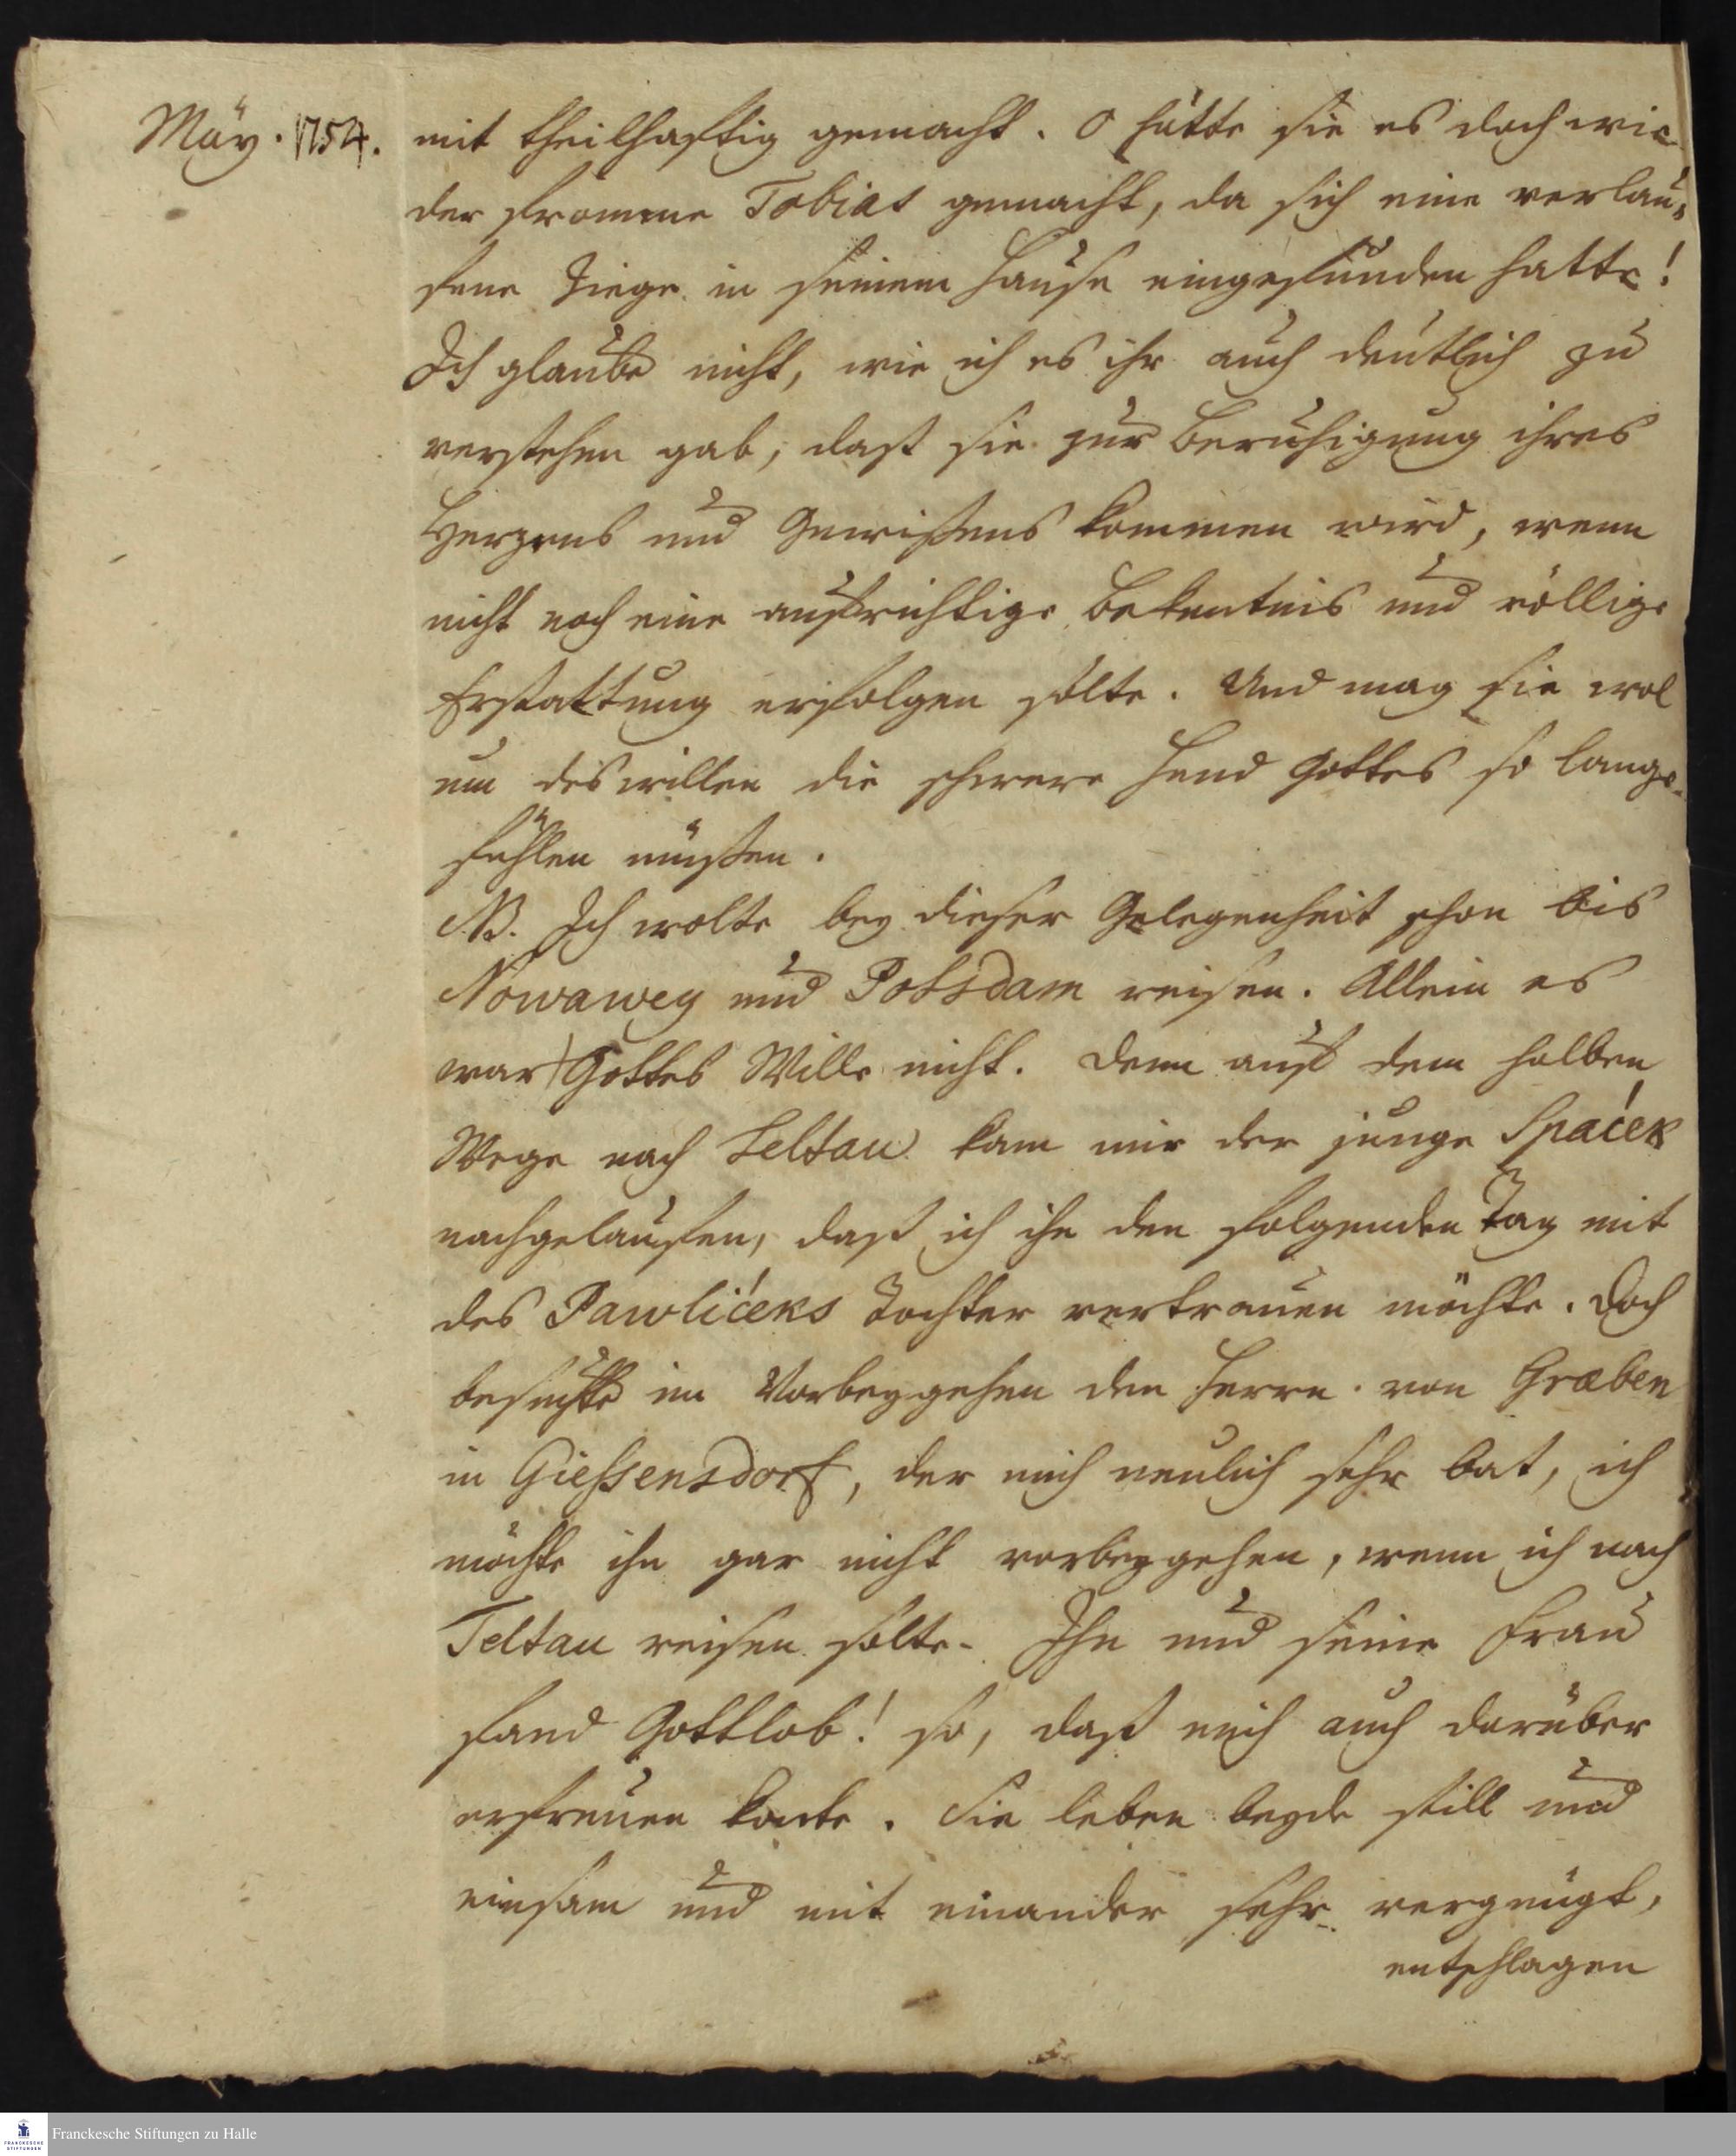 May. 1754.
mit theilhaftig gemacht. O hätte sie es doch wie
der fromme Tobias gemacht, da sich eine verlau,
fene Ziege in seinem Hause eingefunden hatte!
Ich glaube nicht, wie ich es ihr auch deutlich zu
verstehen gab, dass sie zur Beruhigung ihres
Herzens und Gewißens kommen wird, wenn
nicht noch eine aufrichtige Bekentnis und völlige
Erstattung erfolgen solte. Und mag sie wol
um des willen die schwere Hand Gottes so lange
fühlen müßen.
NB. Ich wolte bey dieser Gelegenheit schon bis
Nowawey und Potsdam reisen. Allein es
war Gottes Wille nicht. Denn auf dem halben
Wege nach Teltau kam mir der junge Spaćek
nachgelaufen, daß ich ihn den folgenden Tag mit
des Pawlićeks Tochter vertrauen möchte. Doch
besuchte im Vorbeygehen den Herrn von Græben
in Gießensdorf, der mich neulich sehr bat, ich
möchte ihn gar nicht vorbeygehen, wenn ich nach
Teltau reisen solte. Ihn und seine Frau
fand Gottlob! so, daß mich auch darüber
erfreuen konte. Sie leben beyde still und
einsam und mit einander sehr vergnügt,
entschlagen
Franckesche Stiftungen zu Halle
FRANCKESCHE
STIFTUNGEN